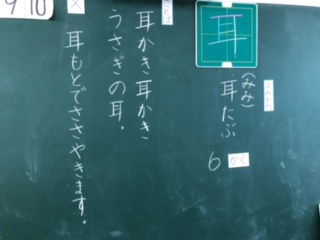 耳
よみかた
(みみ)
耳たぶ
6 かく
ことば
耳かき耳かき
うさぎの耳。
文
耳もとでささやきます。
9 10